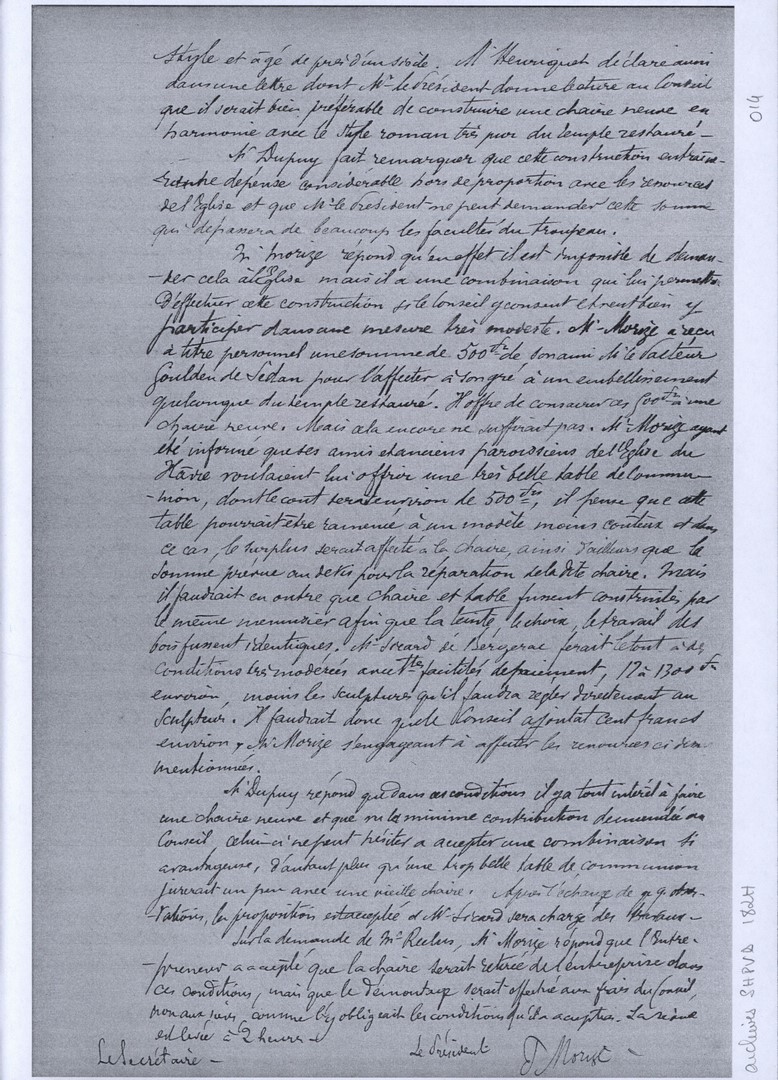 style et âgé de près d'un siècle. Mr Henriquet déclare aussi
dans une lettre dont Mr le Président donne lecture au Conseil
que il serait bien préférable de construire une chaire neuve en
harmonie avec le style roman très pur du temple restauré -
Mr Dupuy fait remarquer que cette construction entraine-
dépense considérable hors de proportion avec les ressources
de l'Eglise et que Mr le Président ne peut demander cette somme
qui dépassera de beaucoup les facultés du troupeau.
Mr Morize répond qu'en effet il est impossible de deman-
-der cela à l'Eglise mais il a une combinaison qui lui permettra
d'effectuer cette construction si le Conseil y consent et veut bien y
participer dans une mesure très modeste. Mr Morize a reçu
à titre personnel une somme de 500 frs de son ami Mr le Pasteur
Goulden de Sedan pour l'affecter à son gré à un embellissement
quelconque du temple restauré. Il offre de consacrer ces 500 frs à une
chaire neuve. Mais cela encore ne suffirait pas. Mr Morize ayant
été informé que ses amis et anciens paroissiens de l'Eglise du
Hâvre voulaient lui offrir une très belle table de commu-
-nion, dont le cout serait environ de 500 frs, il pense que cette
table pourrait être ramenée à un modèle moins couteux et dans
ce cas, le surplus serait affecté à la chaire, ainsi d'ailleurs que la
somme prévue au devis pour la réparation de la dite chaire. Mais
il faudrait en outre que chaire et table fussent construites par
le même menuisier afin que la teinte, le choix, le travail des
bois fussent identiques. Mr Sicard de Bergerac ferait le tout à des
conditions très modérées avec ttes facilités de paiement, 12 à 1300 frs
environ, moins les sculptures qu'il faudra régler directement au
sculpteur. Il faudrait donc que le Conseil ajoutat cent francs
environ, Mr Morize s'engageant à affecter les ressources ci dessus
mentionnées.
Mr Dupuy répond que dans ces conditions il y a tout intérêt à faire
une chaire neuve et que vu la minime contribution demandée au
Conseil, celui-ci ne peut hésiter a accepter une combinaison si
avantageuse, d'autant plus qu'une trop belle table de communion
jurerait un peu avec une vieille chaire. Après l'échange de qq obser-
-vations, la proposition est acceptée et Mr Sicard sera chargé des travaux -
Sur la demande de Mr Reclus, Mr Morize répond que l'Entre-
-preneur a accepté que la chaire serait retirée de l'entreprise dans
ces conditions, mais que le démontage serait effectué aux frais du Conseil,
non aux siens, comme l'y obligeait les conditions qu'il a acceptées. La séance
est levée à 2 heures -
Le Secrétaire -
Le Président
J Morize
014
archives SHPVD 182H